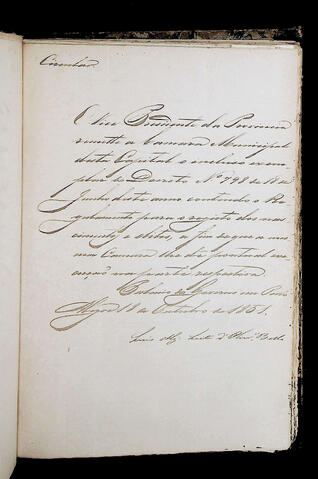 Circular.
O Vice Presidente da Provincia
remette a Camara Municipal
desta Capital o incluso exem-
plar do Decreto Nº 798 de 18 de
Junho deste anno contendo o Re-
gulamento para o registo dos nas-
cimentos e obitos, a fim de que a mes-
ma Camara lhe dê pontual exe-
cução na parte respectiva.
Palacio do Governo em Porto
Alegre 18 de Outubro de 1851.
Luis Alz. Leite d'Olivrª Bello